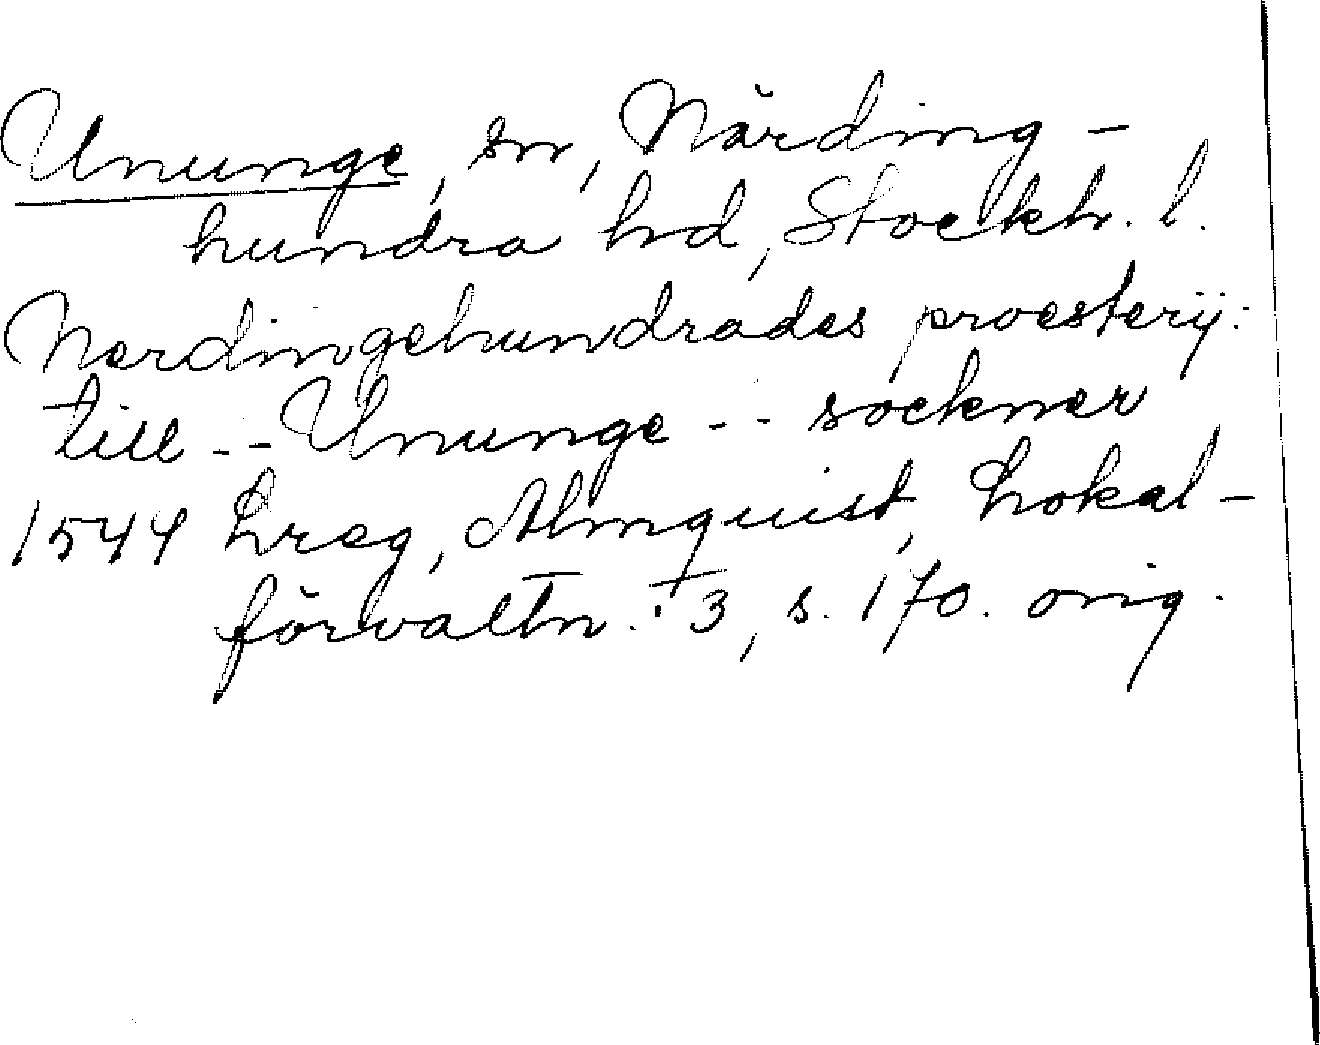 Ununge, sn, Närding-
hundra hd, Stockh. l.
Nerdingehundrades proesterij:
till -- Ununge -- sockner
1544 Lreg, Almquist, Lokal-
förvaltn. : 3, s. 170. orig.